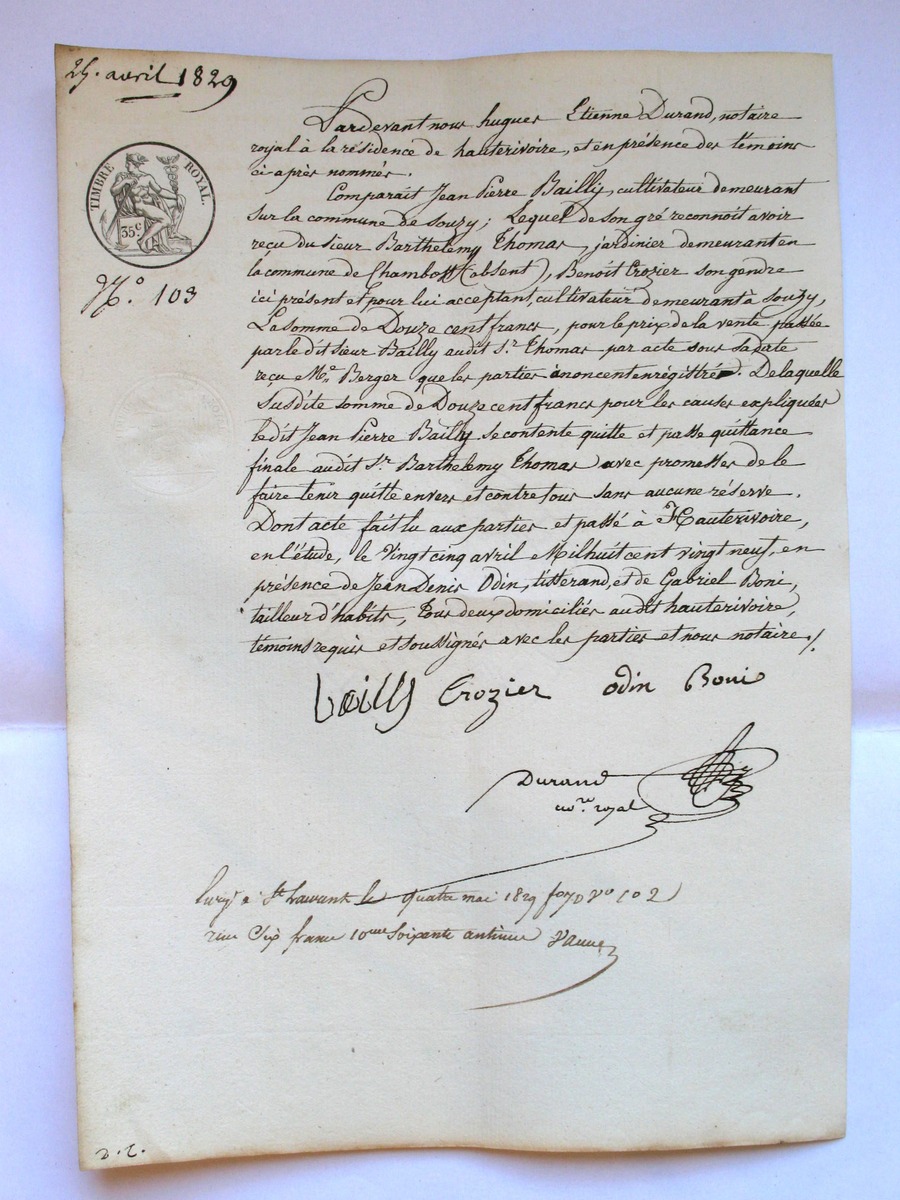 25. avril 1829
TIMBRE ROYAL.
35c.
N.o 103
Pardevant nous hugues Etienne Durand, notaire
royal à la résidence de hauterivoire, et en présence des témoins
ci après nommés.
Comparait Jean Pierre Bailly, cultivateur demeurant
sur la commune de souzy; Lequel de son gré reconnoit avoir
reçu du sieur Barthelemy Thomas, jardinier demeurant en
la commune de Chambost (absent), Benoit Crozier son gendre
ici présent et pour lui acceptant, cultivateur demeurant à souzy,
La somme de Douze cent francs, pour le prix de la vente passée
par le dit sieur Bailly audit s.r Thomas par acte sous sa date
reçu M.e Berger que les parties énoncent enrégistré. De laquelle
susdite somme de Douze cent francs pour les causes expliquées
le dit Jean Pierre Bailly se contente quitte et passe quittance
finale audit S.r Barthelemy Thomas avec promesses de le
faire tenir quitte envers et contre tous sans aucune réserve.
Dont acte fait lu aux parties et passé à Hauterivoire,
en l'étude, le Vingt cinq avril Mil huit cent vingt neuf, en
présence de Jean Denis Odin, titterand, et de Gabriel Boni,
tailleur d'habits, Tous deux domiciliés audit hauterivoire,
témoins requis et soussignés avec les parties et nous notaire./.
bailly Crozier odin Boni
Durand
no.re royal
Enregé à St Laurant le quatre mai 1829 fo 70 Vo C 2
reçu Six francs 10me Soixante centimes
D. C.